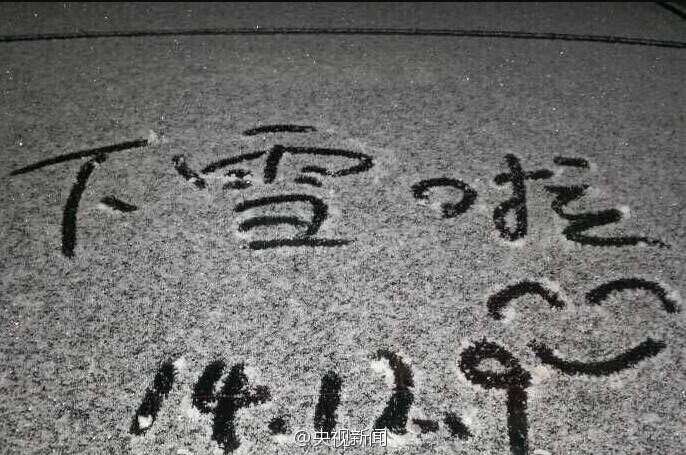 下雪啦
14.12.9
@央视新闻